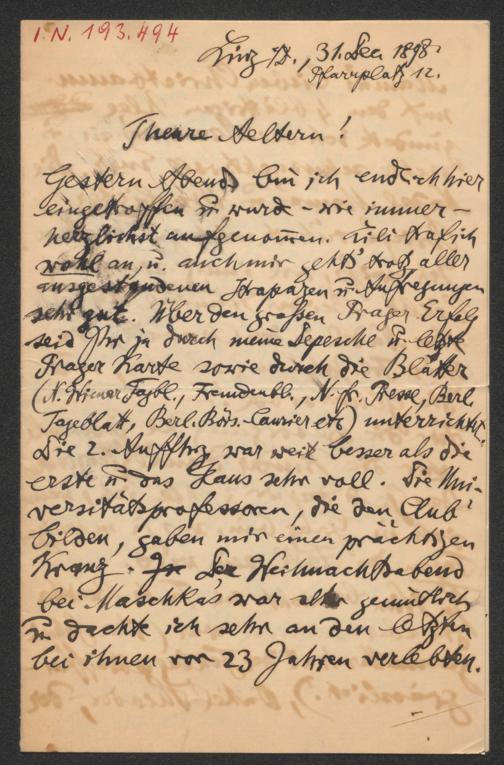 I.N. 193.494
Linz a/D., 31. Dec 1898.
Pfarrplatz 12.
Theure Aeltern!
Gestern Abend bin ich endlich hier
eingetroffen u. wurde – wie immer –
herzlichst aufgenommen. Lili traf ich
wohl an, u. auch mir geht's trotz aller
ausgestandenen Strapazen u. Aufregungen
sehr gut. Über den großen Prager Erfolg
seid Ihr ja durch meine Depesche u. letzte
Prager Karte sowie durch die Blätter
(N. Wiener Tagbl., Fremdenbl., N. fr. Presse, Berl.
Tageblatt, Berl. Börs. Courier etc) unterrichtet.
Die 2. Aufführg war weit besser als die
erste u. das Haus sehr voll. Die Uni-
versitätsprofessoren, die den Club
bilden, gaben mir einen prächtigen
Kranz. Der Weihnachtsabend
bei Maschka's war sehr gemütlich
u. dachte ich sehr an den letzten
bei ihnen vor 23 Jahren verlebten.